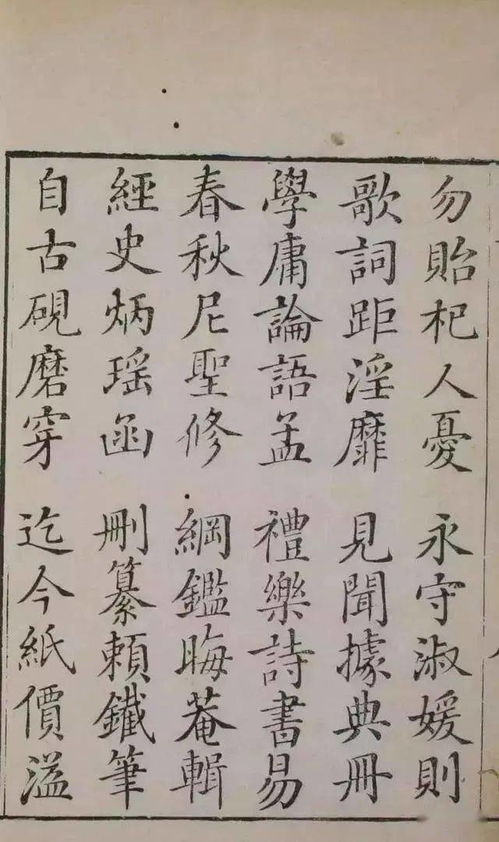 勿貽杞人憂　永守淑媛則
歌詞距淫靡　見聞據典冊
學庸論語孟　禮樂詩書易
春秋尼聖修　綱鑑晦菴輯
經史炳瑶函　刪纂頼鐵筆
自古硯磨穿　迄今紙價溢